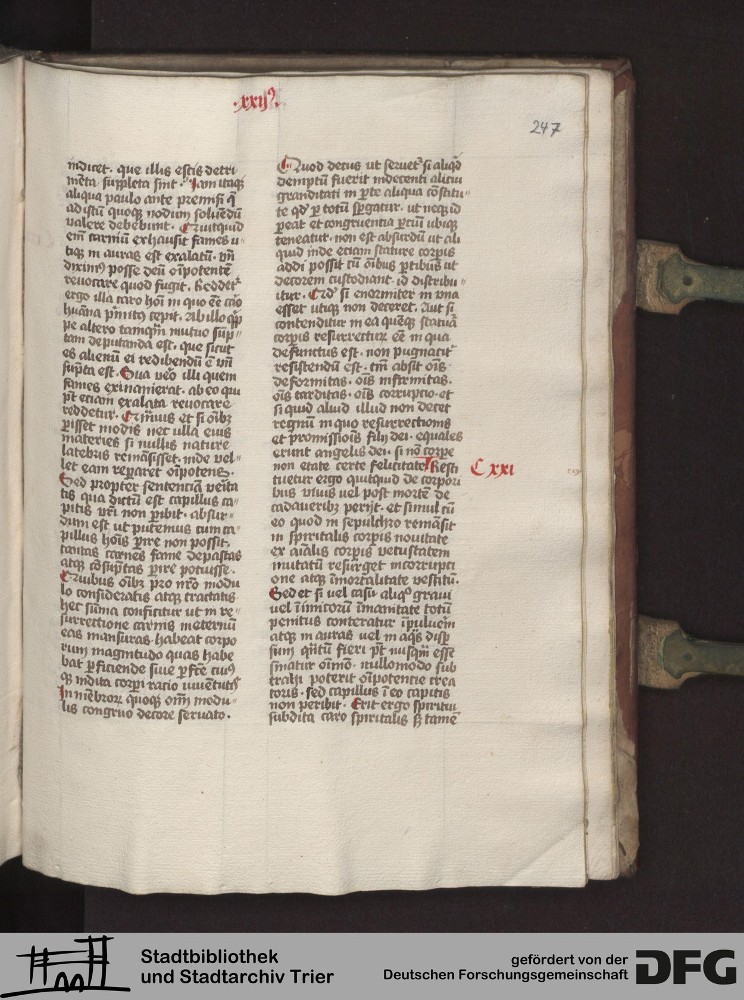 ·xxij·
247
indicet · que illis estis detri
mēta suppleta sint · Iam itaq̄
aliqua paulo ante premisi q̄
ad istū quoq̄ nodum soluēdū
valere debebunt · Quitquid
em̄ carniū exhausit fames u
tiq̄ in auras est exalatū · vn̄
diximꝰ posse deū oīpotentē
reuocare quod fugit · Reddet᷑
ergo illa caro hoī in quo eē cārō
huāna p̄mitꝰ cepit · Ab illo q̄p
pe altero tamqm̄ mutuo sūp
tam deputanda est · que sicut
es alienū ei redibendū ē vn̄
sūpta est · Sua veꝛo illi quem
fames exinanierat · ab eo qui
pt̄ etiam exalata reuocare
reddetur · Q̄muis et si oībꝫ
perisset modis nec ulla eius
materies in nullis nature
latebris remāsisset · inde vel
let eam repararet oīpotens ·
Sed propter sentenciā verita
tis qua dictū est capillus ca
pitis vr̄i non p̄ibit · absur
dum est ut putemus cum ca
pillus hoīs p̄ire non possit ·
tantas carnes fame depastas
atq̄ cōsūptas p̄ire potuisse ·
Quibus oībꝫ pro nr̄o modu
lo consideratis atq̄ tractatis
hec sūma conficitur ut in re
surrectione carnis ineternū
eas mansuras habeat corpo
rum magnitudo quas habe
bat p̄ficiende siue p̄fcē cuiꝰ
q̄ indita corpi racio iuuētutꝭ
In mēbroꝝ quoq̄ om̄ modu
lis congruo decore seruato ·
Quod decus ut seruet᷑ si aliqd̄
demptū fuerit indecenti alicui
granditati in p̄te aliqua cōstitu
te qd̄ p̄ totū sp̄gatur · ut neq̄ id
p̄eat et congruentia p̄ciū ubiq̄
teneatur · non est absurdū ut ali
quid inde eciam stature corp̄is
addi possit cū oībus p̄tibus ut
decorem custodiant · id distribu
itur · Qd̄ si enormiter in vna
esset utiq̄ non deceret · Aut si
contenditur in ea quēq̄ statuā
corp̄is resurrectur eē in qua
defunctus est · non pugnacit᷑
resistendū est · tm̄ absit oīs
deformitas · oīs infirmitas ·
oīs tarditas · oīs corrupcio · et
si quid aliud illud non decet
regnū in quo resurrectionis
et promissiōis filij dei · equales
erunt angelis dei · si nō corpe
non etate certe felicitate Resti
tuetur ergo quitquid de corpori
bus viuis vel post mortē de
cadaueribꝫ perijt · et simul cū
eo quod in sepulchro remāsit
in spiritalis corp̄is nouitate
ex aīalis corp̄is vetustatem
mutatū resurget incorrupti
one atq̄ īmortalitate vestitū ·
Sed et si vel casu aliqͦ graui
vel īimicorū īmanitate totū
penitus conteratur īpuluem̄
atq̄ in auras vel in aq̄s disp̄
sum qn̄tū fieri pt̄ nusq̄m esse
sinatur omīno · nullomodo sub
trahi poterit oīpotentie crea
toris · sed capillus ī eo capitis
non peribit · Erit ergo spiritui
subdita caro spiritalis sꝫ tamē
C xxi
Stadtbibliothek
und Stadtarchiv Trier
gefördert von der
Deutschen Forschungsgemeinschaft
DFG